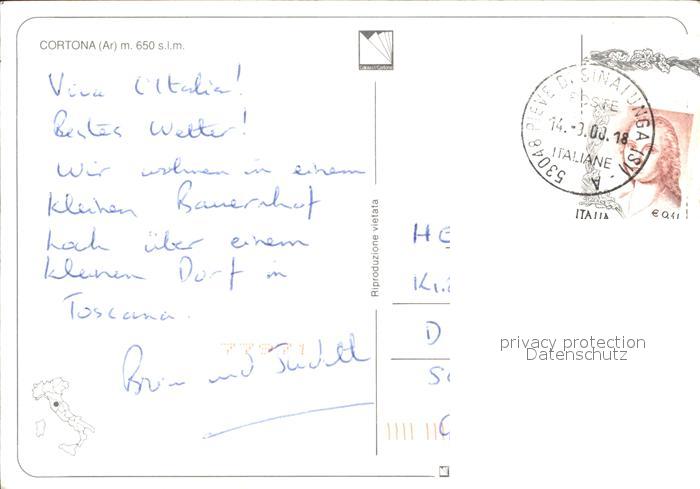 CORTONA (Ar) m. 650 s.l.m.
Viva l'Italia!
Bestes Wetter!
Wir wohnen in einem
kleinen Bauernhof
hoch über einem
kleinen Dorf in
Toscana.
und Judith
Riproduzione vietata
53048 PIEVE D. SINALUNGA (SI)
POSTE
14.-8.00.18
ITALIANE
A
ITALIA
€ 0,41
HE
D
privacy protection
Datenschutz